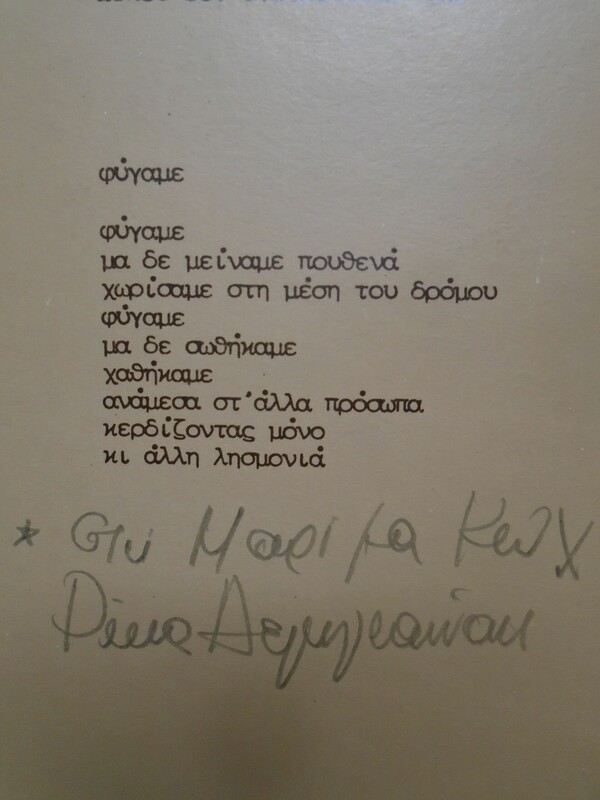 φύγαμε
φύγαμε
μα δε μείναμε πουθενά
χωρίσαμε στη μέση του δρόμου
φύγαμε
μα δε σωθήκαμε
χαθήκαμε
ανάμεσα στ'άλλα πρόσωπα
κερδίζοντας μόνο
κι άλλη λησμονιά
* στη Μαρίζα Κωχ